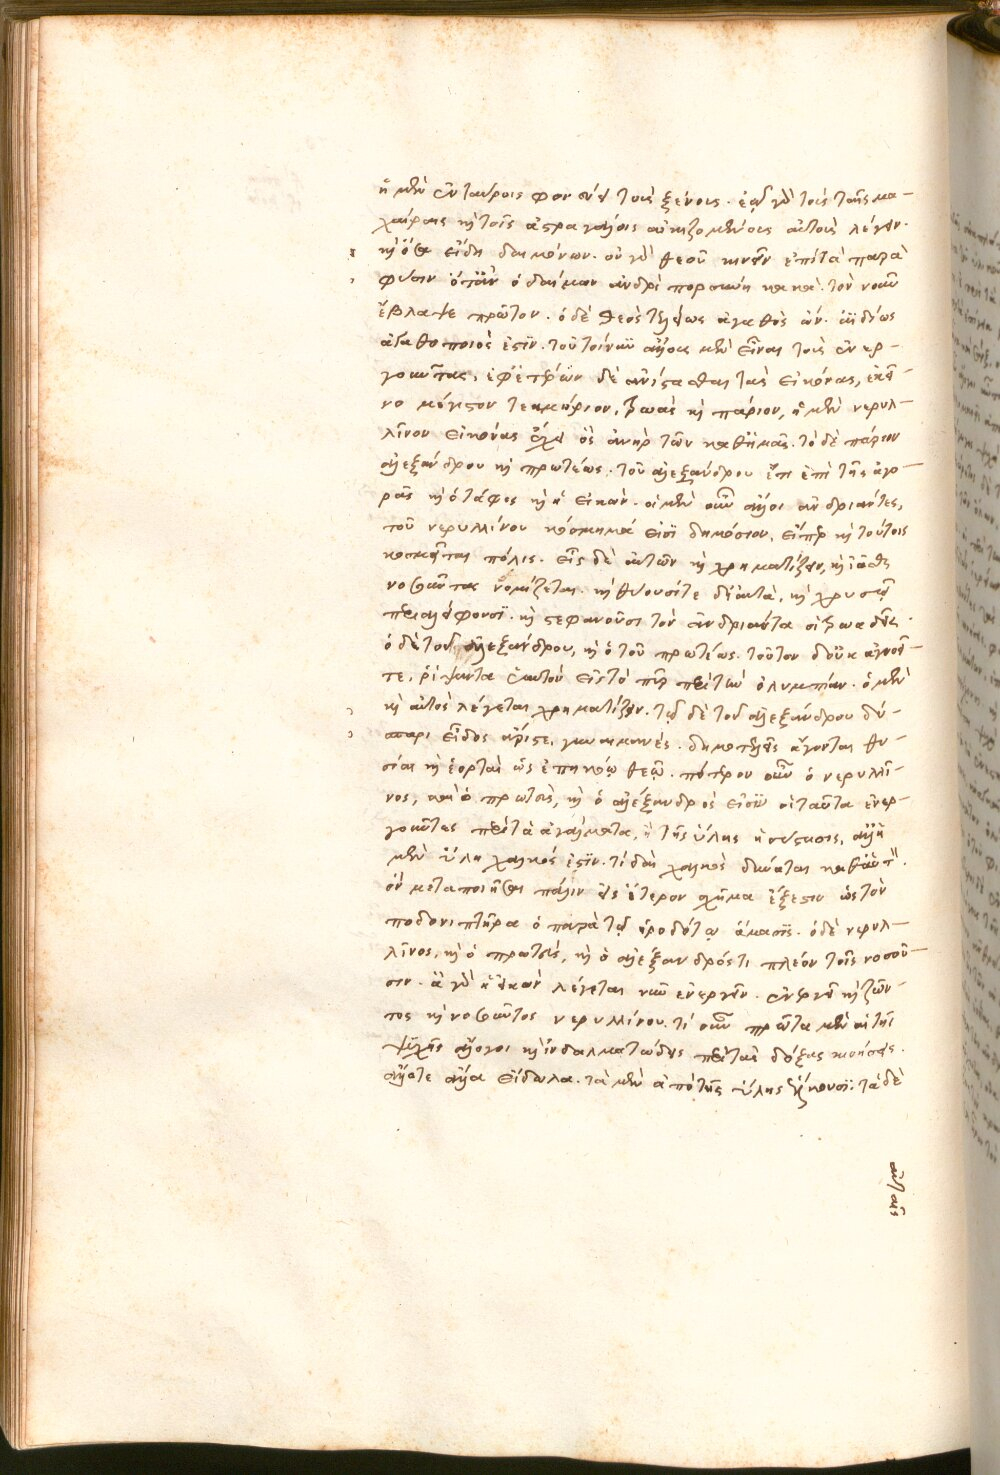 ἡ μὲν ἐν ταύροις φονεύει τοὺς ξένους. ἐῶ γὰρ τοὺς ταῖς μα-
χαίραις καὶ τοῖς ἀστραγάλοις αἰκιζομένους αὐτοὺς λέγειν.
καὶ ὅσα εἴδη δαιμόνων. οὐ γὰρ θεοῦ κινεῖν ἐπὶ τὰ παρὰ
φύσιν ὅταν ὁ δαίμων ἀνδρὶ πορσύνῃ κακὰ. τὸν νοῦν
ἔβλαψε πρῶτον. ὁ δὲ θεὸς τελείως ἀγαθὸς ὢν. ἀϊδίως
ἀγαθοποιός ἐστιν. τοῦ τοίνυν ἄλλους μὲν εἶναι τοὺς ἐνερ-
γοῦντας, ἐφ' ἑτέρων δὲ ἀνίστασθαι τὰς εἰκόνας, ἐκεῖ-
νο μέγιστον τεκμήριον, τρωὰς καὶ πάριον, ἡ μὲν νερυλ-
λίνου εἰκόνας ἔχει ὁς ἀνὴρ τῶν καθ' ἡμᾶς. τὸ δὲ πάριον
ἀλεξάνδρου καὶ πρωτέως. τοῦ ἀλεξάνδρου ἔτι ἐπὶ τῆς ἀγο-
ρᾶς καὶ ὁ τάφος καὶ ἡ εἰκών. οἱ μὲν οὖν ἄλλοι ἀνδριάντες,
τοῦ νερυλλίνου κόσμημά εἰσι δημόσιον, εἴπερ καὶ τούτοις
κοσμεῖται πόλις. εἷς δὲ αὐτῶν καὶ χρηματίζειν, καὶ ἰᾶσθαι
νοσοῦντας νομίζεται. καὶ θύουσί τε δι' αὐτὰ, καὶ χρυσῷ
περιαλείφουσι. καὶ στεφανοῦσι τὸν ἀνδριάντα οἱ τρωαδεῖς.
ὁ δὲ τοῦ ἀλεξάνδρου, καὶ ὁ τοῦ πρωτέως. τοῦτον δ' οὐκ ἀγνοεῖ-
τε, ῥίψαντα ἑαυτὸν εἰς τὸ πῦρ περὶ τὴν ὀλυμπίαν. ὁ μὲν
καὶ αὐτὸς λέγεται χρηματίζειν. τῷ δὲ τοῦ ἀλεξάνδρου δύ-
σπαρι εἶδος ἄριστε, γυναιμανές. δημοτελεῖς ἄγονται θυ-
σίαι καὶ ἑορταὶ ὡς ἐπηκόῳ θεῷ. πότερον οὖν ὁ νερυλλῖ-
νος, καὶ ὁ πρωτεύς, καὶ ὁ ἀλέξανδρός εἰσιν οἱ ταῦτα ἐνερ-
γοῦντες περὶ τὰ ἀγάλματα, ἢ τῆς ὕλης ἡ σύστασις, ἀλλ' ἡ
μὲν ὕλη χαλκός ἐστιν. τί δαὶ χαλκὸς δύναται καθ' αὑτ".
ὃν μεταποιῆσαι πάλιν εἰς ἕτερον σχῆμα ἔξεστιν ὡς τὸν
ποδονιπτῆρα ὁ παρὰ τῷ ἡροδότῳ ἄμασις. ὁ δὲ νερυλ-
λῖνος, καὶ ὁ πρωτεύς, καὶ ὁ ἀλέξανδρός τι πλέον τοῖς νοσοῦ-
σιν. ἃ γὰρ ἡ εἰκὼν λέγεται νῦν ἐνεργεῖν. ἐνήργει καὶ ζῶν-
τος καὶ νοσοῦντος νερυλλίνου. τί οὖν πρῶτα μὲν αἱ τῆς
ψυχῆς ἄλογοι καὶ ἰνδαλματώδεις περὶ τὰς δόξας κινήσεις.
ἄλλοτε ἄλλα εἴδωλα. τὰ μὲν ἀπὸ τῆς ὕλης ἕλκουσι. τὰ δὲ
αὐταῖς